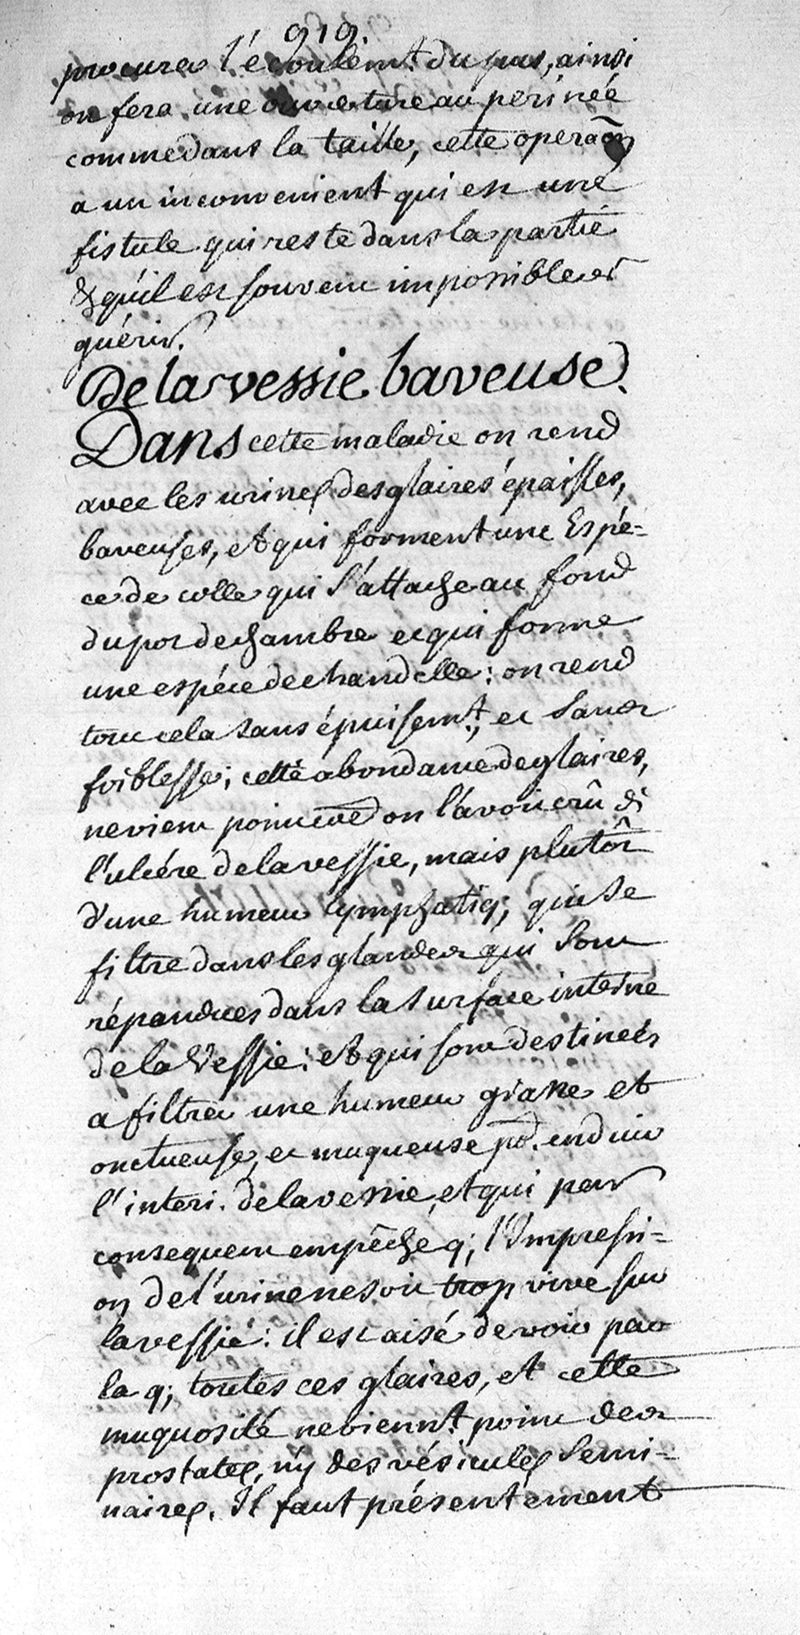 919.
procurer l'écoulemt. du pus, ainsi
on fera une ouverture au perinée
comme dans la taille, cette operaõn
a un inconvenient qui est une
fistule qui reste dans la partie
& qu'il est souvent impossible de
guérir.
De la vessie baveuse.
Dans cette maladie on rend
avec les urines des glaires épaisses,
baveuses, et qui forment une Espé=
ce de colle qui s'attache au fond
du pot de chambre et qui forme
une espéce de chandelle: on rend
tout cela sans épuisemt., et sans
foiblesse; cette abondance de glaires,
ne vient point on l'avoit crû de
l'ulcére de la vessie, mais plutôt
d'une humeur lymphatiq; qui se
filtre dans les glandes qui sont
répandues dans la surface interne
de la Vessie: et qui sont destineés
a filtrer une humeur grasse et
onctueuse, et muqueuse pr. enduir
l'interi. de la vessie, et qui par
consequent empêche q; l'Impressi=
on de l'urine ne soit trop vive sur
la vessie: il est aisé de voir par
la q; toutes ces glaires, et cette
muquosité neviennt. point des
prostates, n'y des vésicules semi=
naires. Il faut présentement